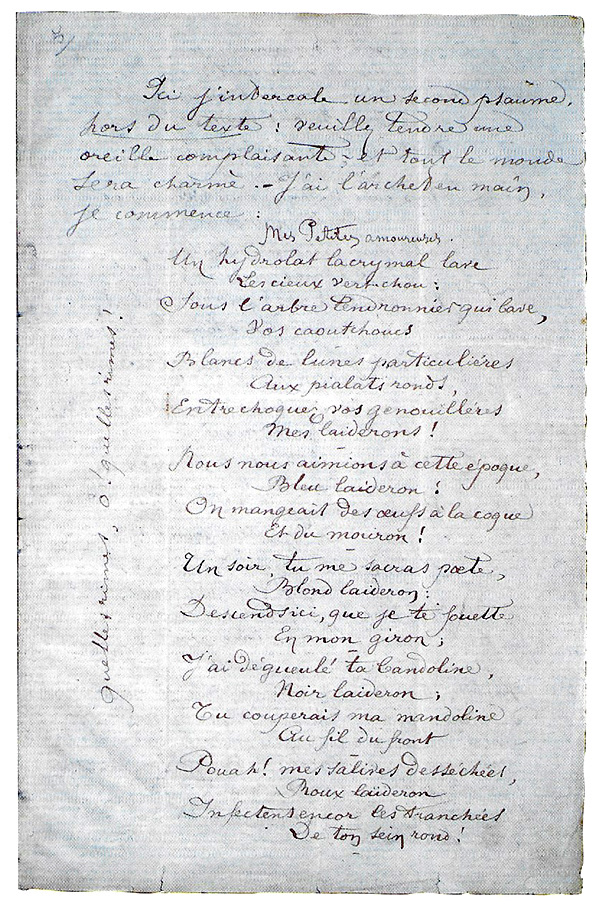 Ici j'intercale un second psaume,
hors du texte : veuillez tendre une
oreille complaisante, - et tout le monde
sera charmé. - J'ai l'archet en main,
je commence :
Mes Petites amoureuses.
Un hydrolat lacrymal lave
Les cieux vert-chou :
Sous l'arbre tendronnier qui bave,
Vos caoutchoucs
Blancs de lunes particulières
Aux pialats ronds,
Entrechoquez vos genouillères
Mes laiderons !
Nous nous aimions à cette époque,
Bleu laideron !
On mangeait des œufs à la coque
Et du mouron !
Un soir, tu me sacras poète,
Blond laideron :
Descends ici, que je te fouette
En mon giron ;
J'ai dégueulé ta bandoline,
Noir laideron ;
Tu couperais ma mandoline
Au fil du front
Pouah ! mes salives desséchées,
Roux laideron
Infectent encor les tranchées
De ton sein rond !
Quelles rimes, ô ! quelles rimes !